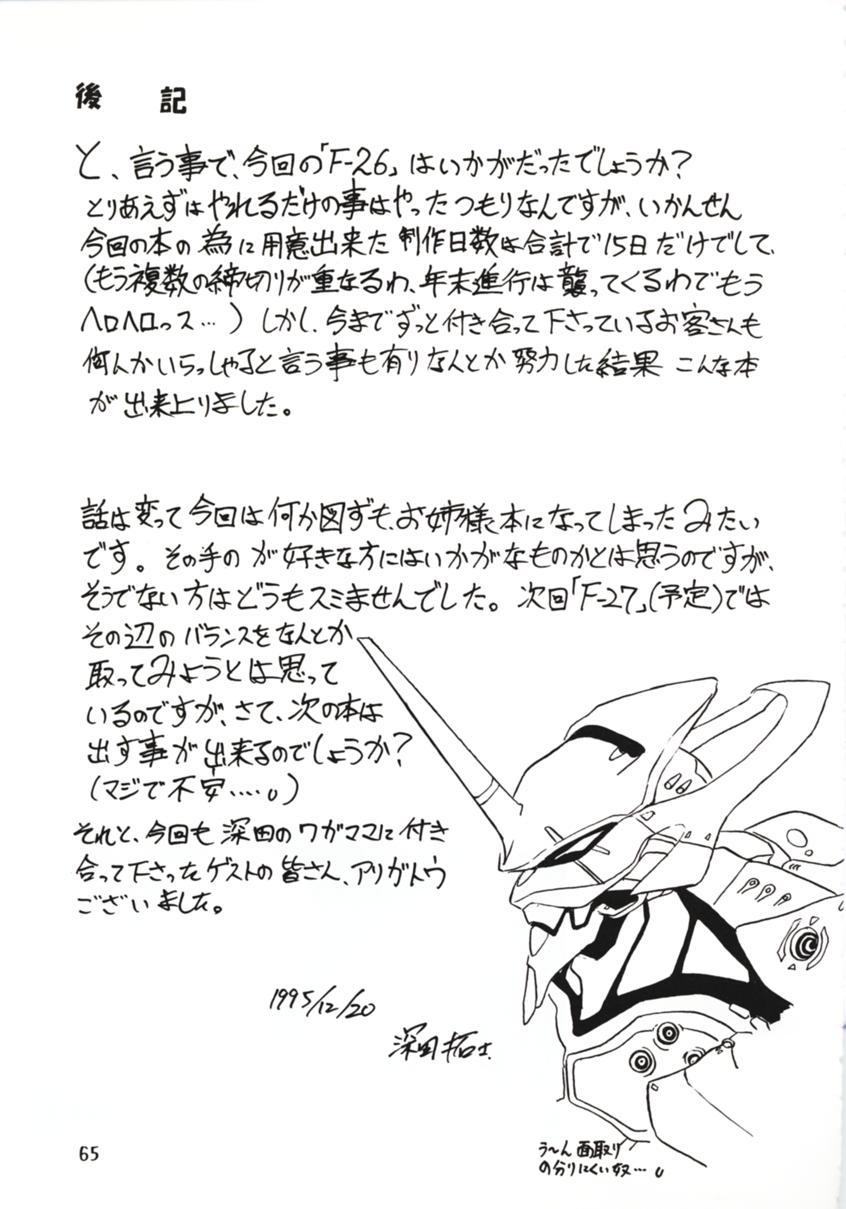 後 記
と、言う事で、今回の「F-26」はいかがだったでしょうか?
とりあえずはやれるだけの事はやったつもりなんですが、いかんせん
今回の本の為に用意出来た制作日数は合計で15日だけでして、
(もう複数の締切りが重なるわ、年末進行は襲ってくるわでもう
ヘロヘロっス…)しかし、今までずっと付き合って下さっているお客さんも
何人かいらっしゃると言う事も有りなんとか努力した結果 こんな本
が出来上りました。
話は変って今回は何か図ずも、お姉様本になってしまったみたい
です。その手のが好きな方にはいかがなものかとは思うのですが、
そうでない方はどうもスミませんでした。次回「F-27」(予定)では
その辺のバランスをなんとか
取ってみようとは思って
いるのですが、さて、次の本は
出す事が出来るのでしょうか?
(マジで不安……)
それと、今回も深田のワガママに付き
合って下さったゲストの皆さん、アリガトウ
ございました。
1995/12/20
深田拓士
う〜ん面取り
の分りにくい奴…
65